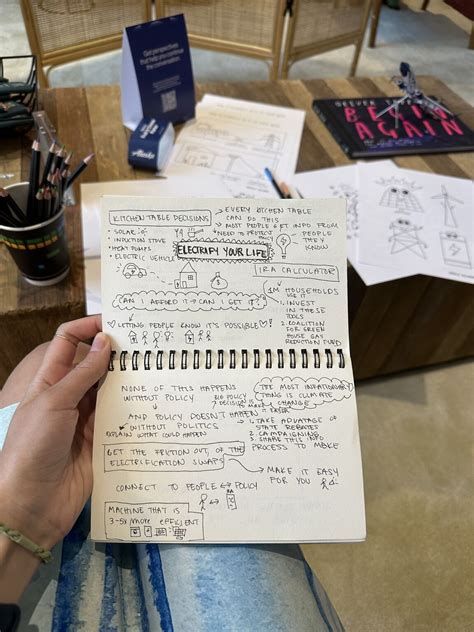 Get perspectives
that help you continue
the conversation.
Alaska
OLIVER JEFFERS
BEGIN
AGAIN
KITCHEN TABLE DECISIONS
• SOLAR
• INDUCTION STOVE
• HEAT PUMPS
• ELECTRIC VEHICLE
EVERY KITCHEN TABLE
CAN DO THIS
MOST PEOPLE GET INFO FROM
PEOPLE
THEY
KNOW
NEED TO PROTECT
ELECTRIFY YOUR LIFE
IRA CALCULATOR
1M HOUSEHOLDS
USE IT
1. INVEST
IN THESE
TOOLS
2. COALITION
FOR GREEN
HOUSE GAS
REDUCTION FUND
CAN I AFFORD IT → CAN I GET IT
LETTING PEOPLE KNOW IT'S POSSIBLE!
NONE OF THIS HAPPENS
WITHOUT POLICY
AND POLICY DOESN'T HAPPEN
WITHOUT POLITICS
EXPLAIN WHAT COULD HAPPEN
BIG POLICY
DECISION
THE MOST INFLATIONARY
THING IS CLIMATE
CHANGE
1. TAKE ADVANTAGE OF
STATE REBATES
2. CAMPAIGNING
3. SHARE THIS INFO
PROCESS TO MAKE
GET THE FRICTION OUT OF THE
ELECTRIFICATION SWAPS
MAKE IT EASY
FOR YOU
CONNECT TO PEOPLE ↔ POLICY
MACHINE THAT IS
3-5X MORE EFFICIENT